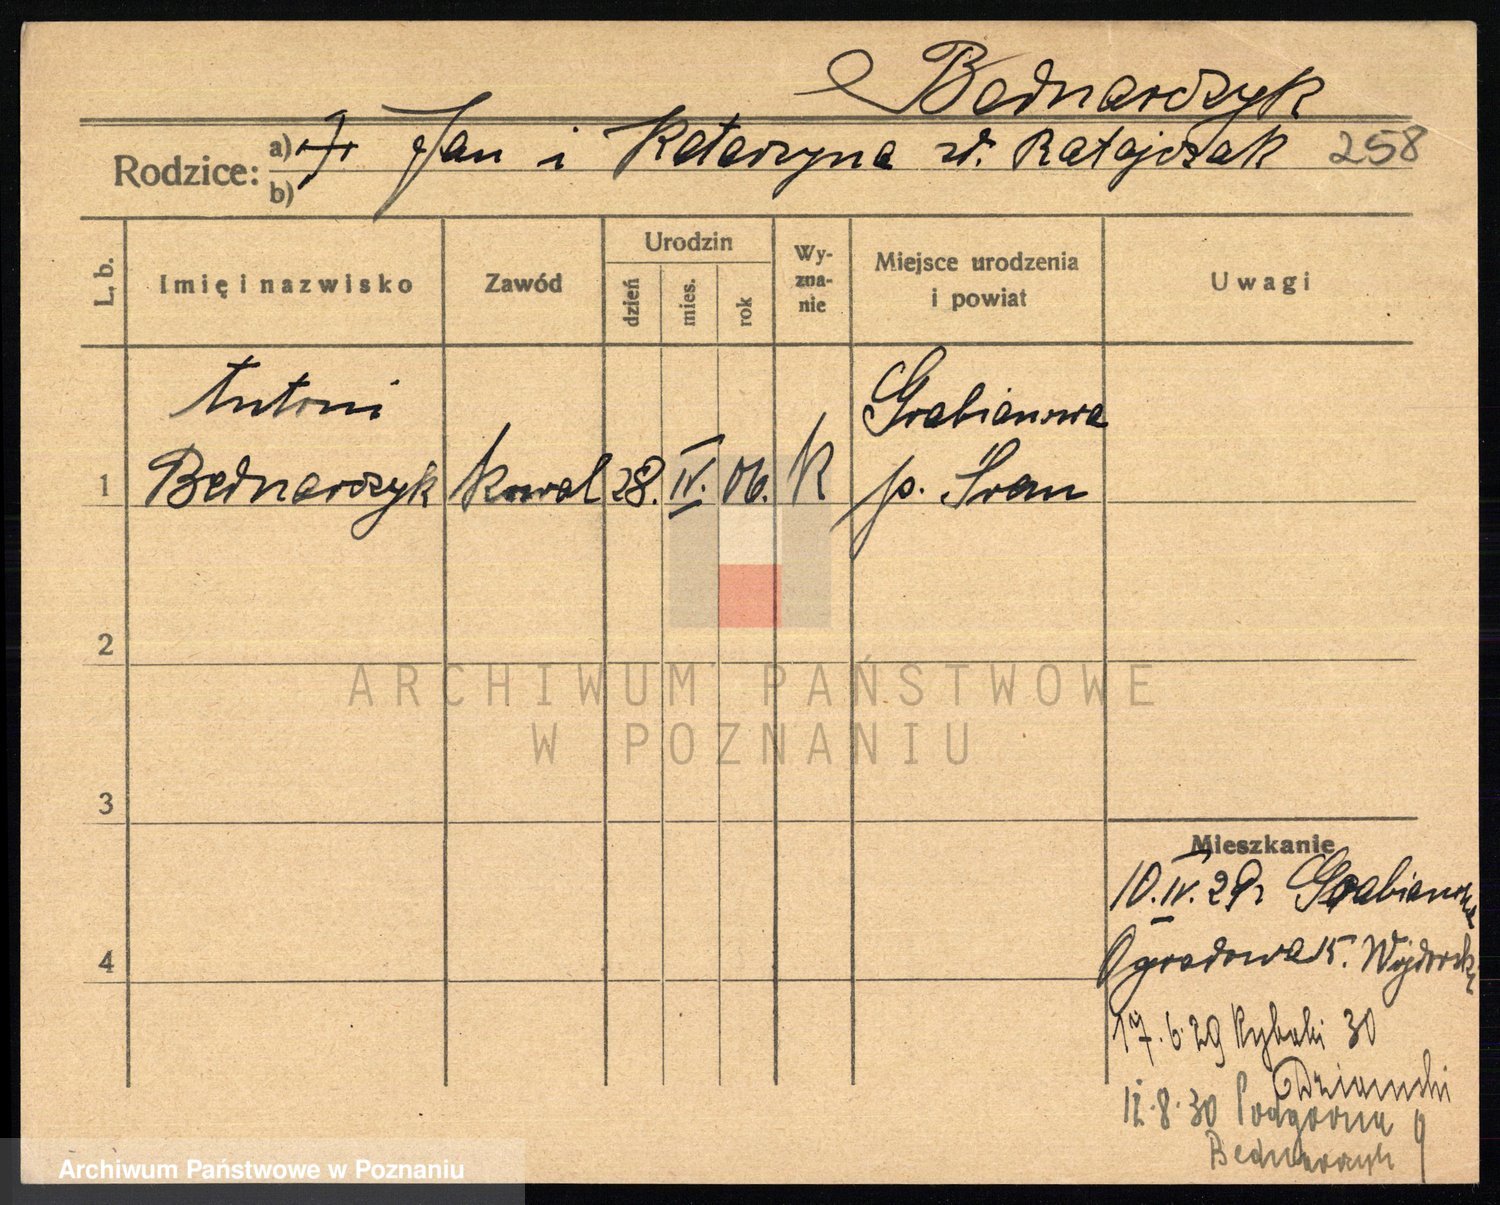 Bednarczyk
Rodzice: a) Jan i Katarzyna z d. Ratajczak 258
b)
L. b.
Imię i nazwisko
Zawód
Urodzin
dzień
mies.
rok
Wy-
zna-
nie
Miejsce urodzenia
i powiat
Uwagi
1
Antoni
Bednarczyk
kowal
28.
IV.
06.
K
Grabianowa
p. Śrem
2
3
4
ARCHIWUM PAŃSTWOWE
W POZNANIU
Mieszkanie
10.IV.29r Grabianowa
Ogrodowa 15.
17.6.29 Rybaki 30
11.8.30 Podgórna 9
Bednarczyk
Archiwum Państwowe w Poznaniu